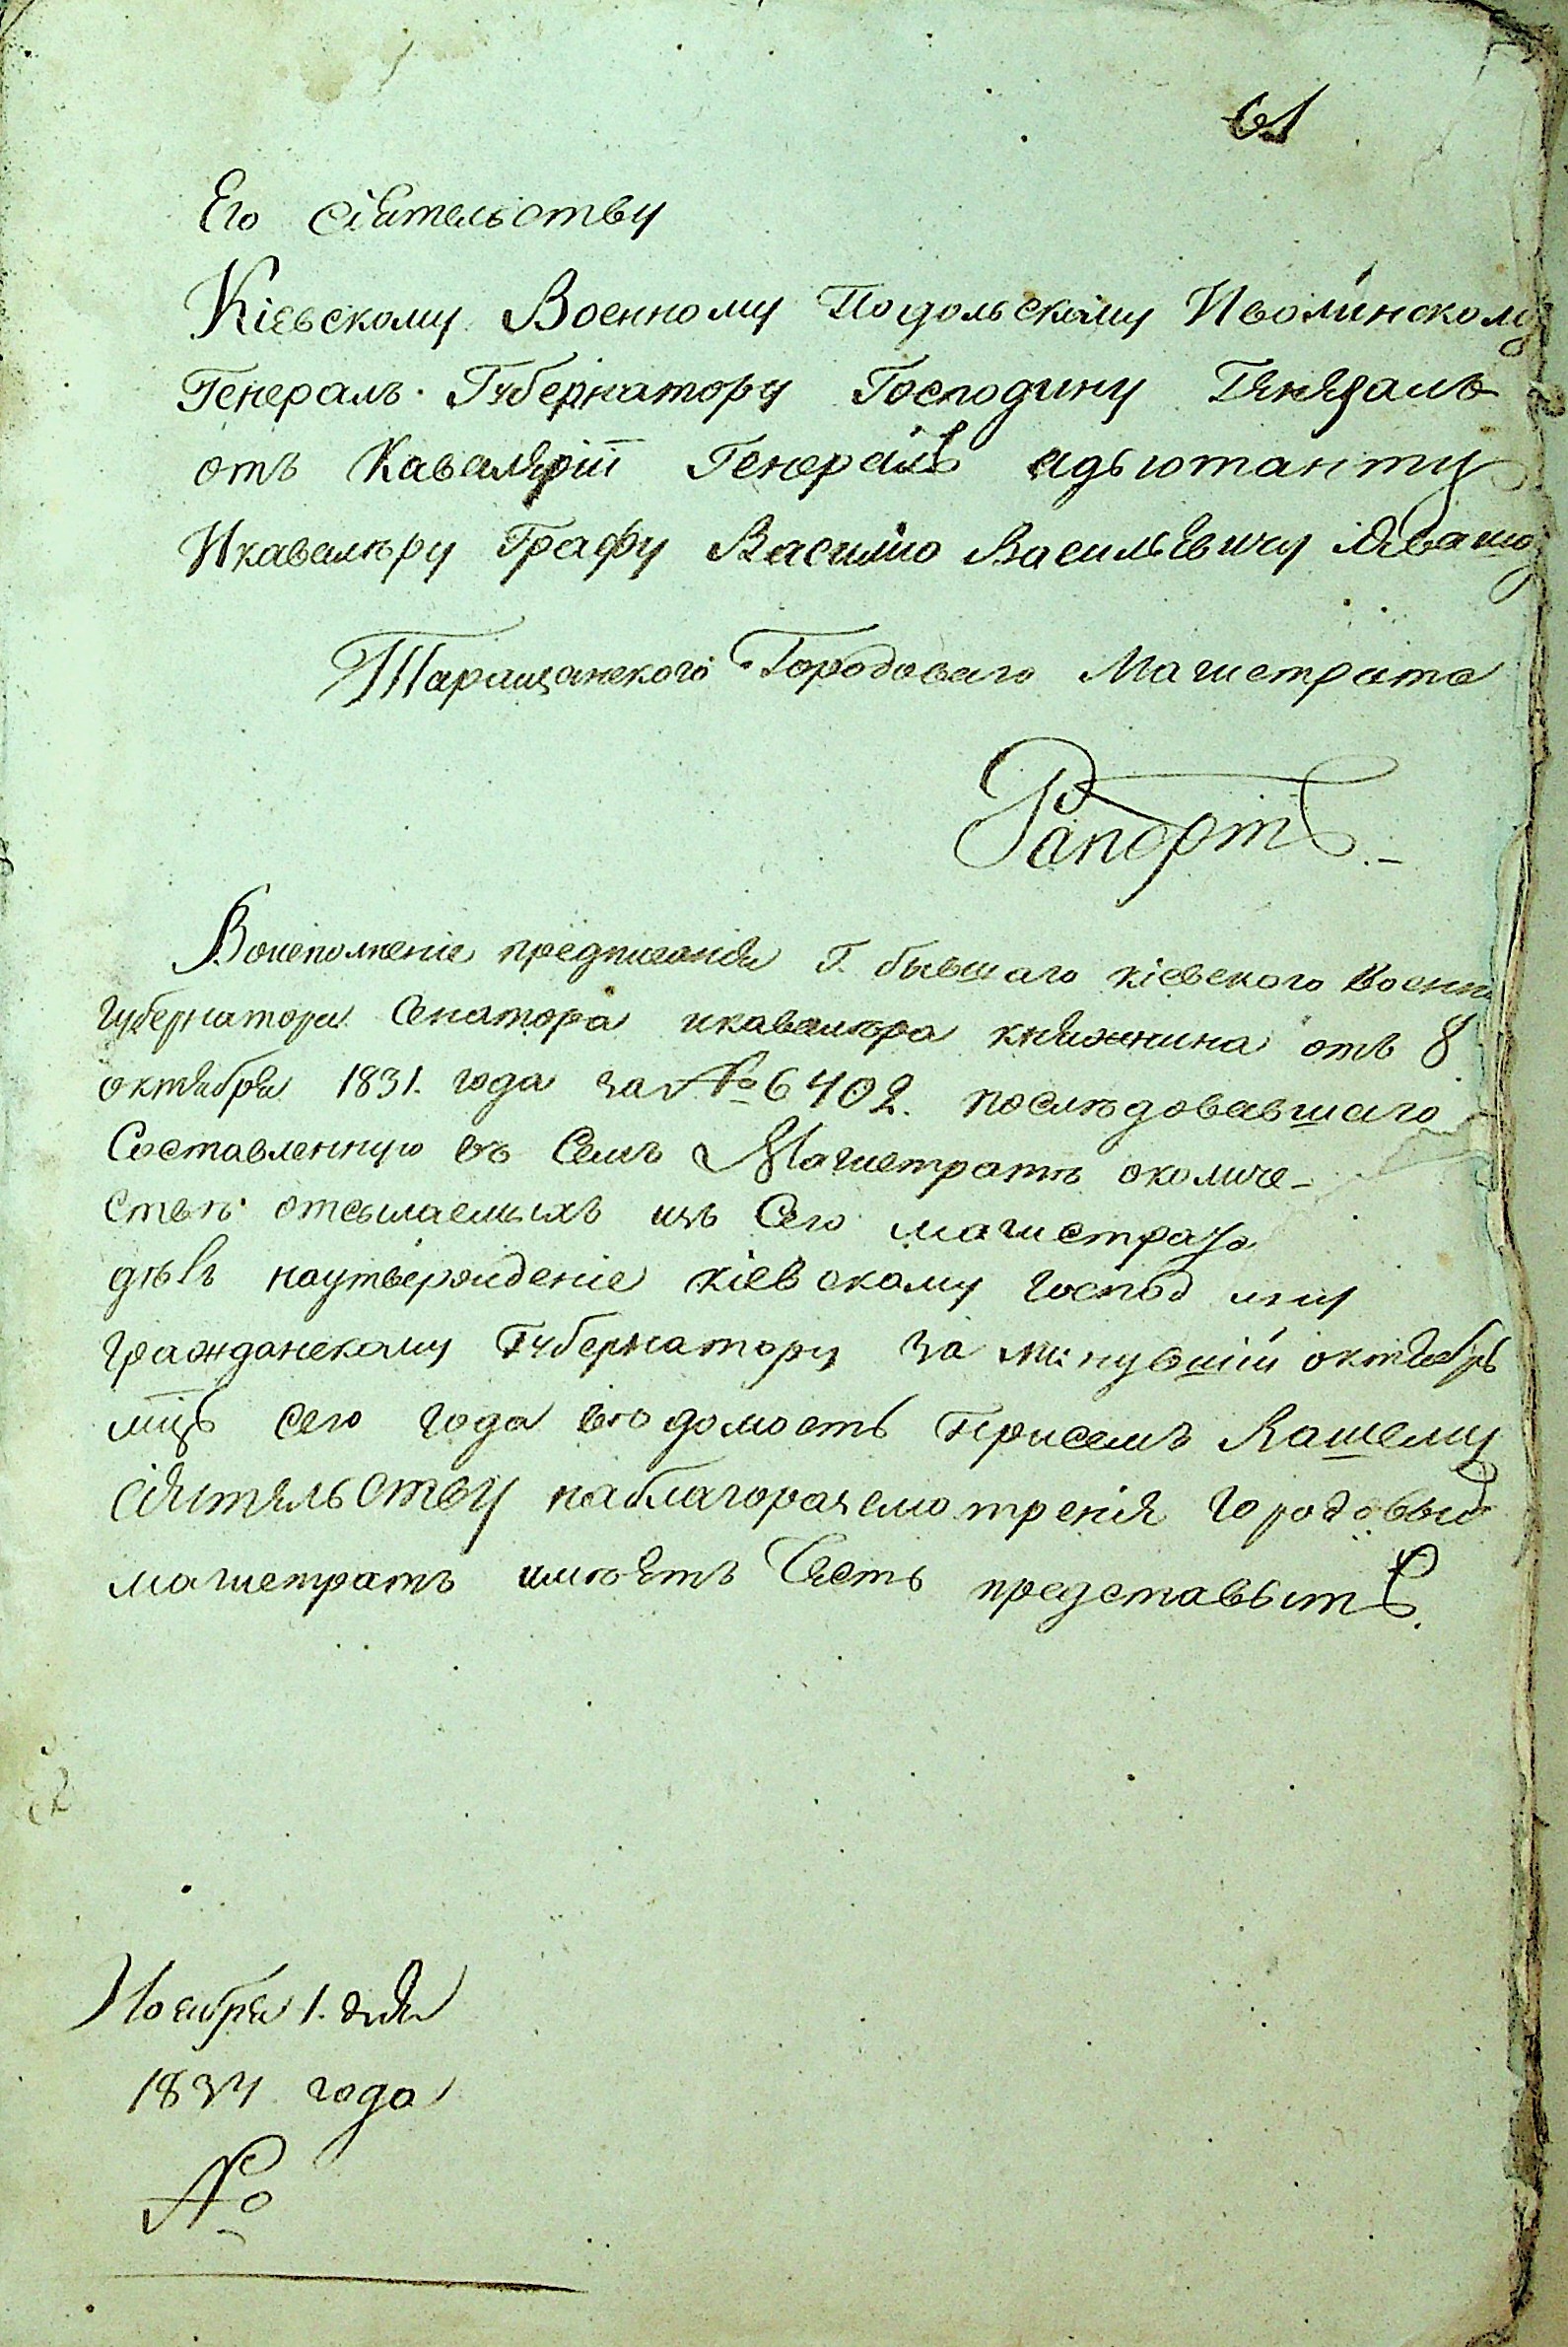 61
Его сіятельству
Кіевскому Военному Подольскому Иволинскому
Генералъ. Губернатору Господину Генералъ
отъ Кавалеріи Генералъ адьютанту
Икавалѣру Графу Василию Васильевичу Левашо
Таращанского Городоваго Магистрата
Рапортъ.–
Воисполненіе предписанія Г. бывшаго кіевского Воен
губернатора Сенатора икавалѣра княжнина отъ 8
октября 1831. года за № 6402. послѣдовавшаго
Составленную въ Семъ Магистратѣ околиче-
ствѣ отсылаемыхъ изъ Сего магистрата
дѣлъ наутверждение кіевскому господину
гражданскому Губернатору за минувшій октябрь
мцъ сего года вѣдомость присемъ Вашему
сіятельству наблагоразсмотреніе городовый
магистратъ имѣетъ Честь представыть.
Ноября 1. дня
1834 года
№